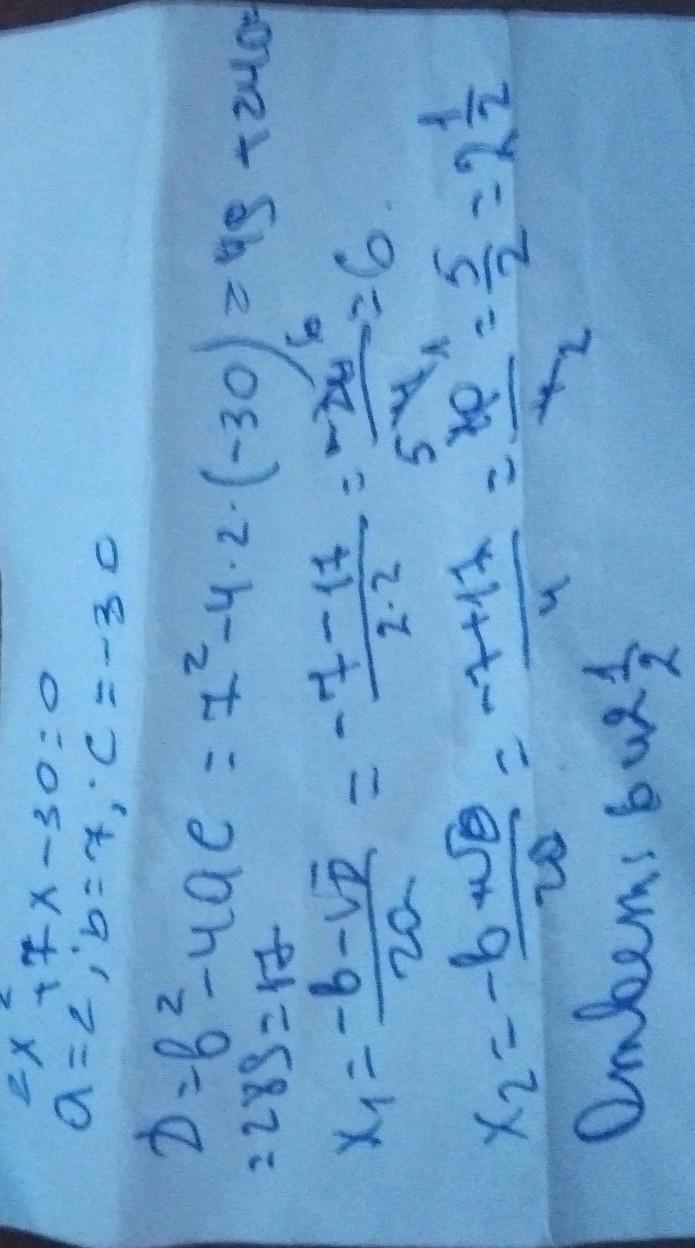 2x² + 7x - 30 = 0
a = 2, b = 7, c = -30
D = b² - 4ac = 7² - 4 · 2 · (-30) = 49 + 240 =
= 289 = 17
x₁ = (-b - √D)/2a = (-7 - 17)/(2 · 2) = -24/4 = 6.
x₂ = (-b + √D)/2a = (-7 + 17)/4 = 10/4 = 5/2 = 2 1/2
Ответ: 6 и 2 1/2